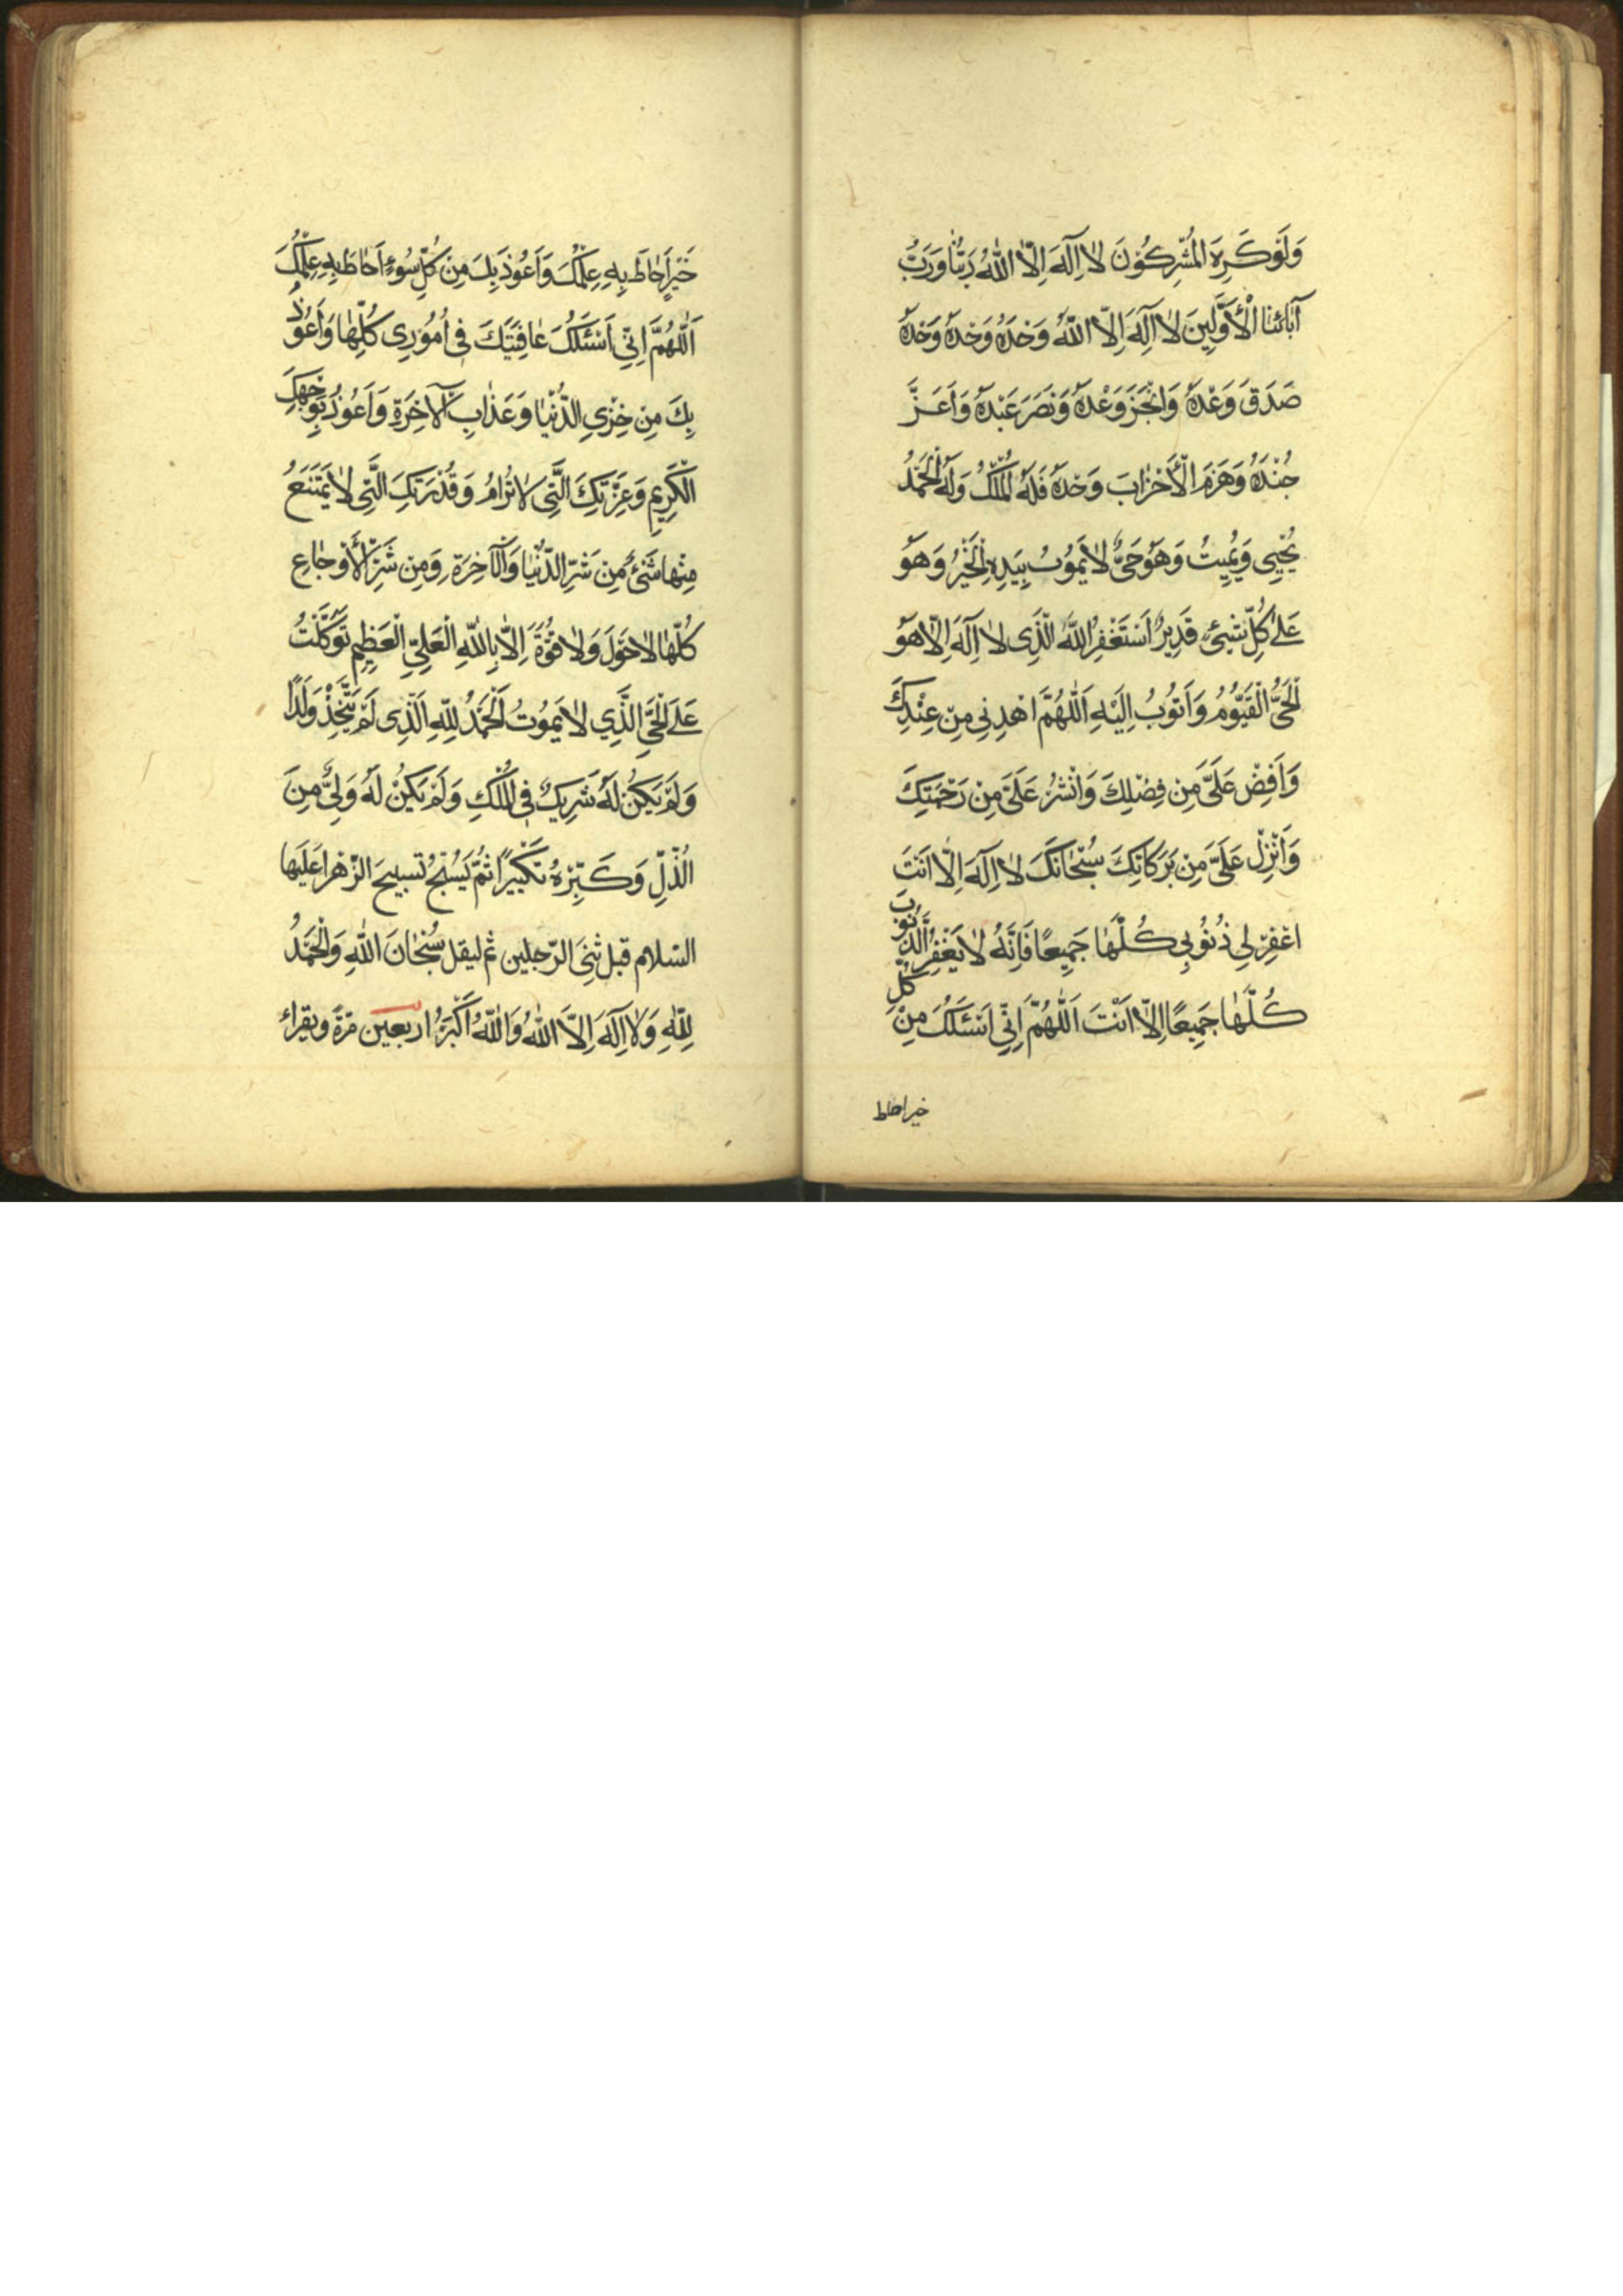 وَلَوْ كَرِهَ الْمُشْرِكُونَ لَا اِلٰهَ اِلَّا اللّٰهُ رَبُّنَا وَرَبُّ
آبَائِنَا الْأَوَّلِينَ لَا اِلٰهَ اِلَّا اللّٰهُ وَحْدَهُ وَحْدَهُ وَحْدَهُ
صَدَقَ وَعْدَهُ وَاَنْجَزَ وَعْدَهُ وَنَصَرَ عَبْدَهُ وَاَعَزَّ
جُنْدَهُ وَهَزَمَ الْأَحْزَابَ وَحْدَهُ فَلَهُ الْمُلْكُ وَلَهُ الْحَمْدُ
يُحْيِي وَيُمِيتُ وَهُوَ حَيٌّ لَا يَمُوتُ بِيَدِهِ الْخَيْرُ وَهُوَ
عَلٰى كُلِّ شَيْءٍ قَدِيرٌ اَسْتَغْفِرُ اللّٰهَ الَّذِى لَا اِلٰهَ اِلَّا هُوَ
الْحَيُّ الْقَيُّومُ وَاَتُوبُ اِلَيْهِ اَللّٰهُمَّ اهْدِنِي مِنْ عِنْدِكَ
وَاَفِضْ عَلَيَّ مِنْ فَضْلِكَ وَانْشُرْ عَلَيَّ مِنْ رَحْمَتِكَ
وَاَنْزِلْ عَلَيَّ مِنْ بَرَكَاتِكَ سُبْحَانَكَ لَا اِلٰهَ اِلَّا اَنْتَ
اغْفِرْ لِي ذُنُوبِي كُلَّهَا جَمِيعًا فَاِنَّهُ لَا يَغْفِرُ الذُّنُوبَ
كُلَّهَا جَمِيعًا اِلَّا اَنْتَ اَللّٰهُمَّ اِنِّي اَسْئَلُكَ مِنْ كُلِّ
خير احاط
خَيْرٍ اَحَاطَ بِهِ عِلْمُكَ وَاَعُوذُ بِكَ مِنْ كُلِّ سُوءٍ اَحَاطَ بِهِ عِلْمُكَ
اَللّٰهُمَّ اِنِّي اَسْئَلُكَ عَافِيَتَكَ فِى اُمُورِى كُلِّهَا وَاَعُوذُ
بِكَ مِنْ خِزْيِ الدُّنْيَا وَعَذَابِ الْآخِرَةِ وَاَعُوذُ بِوَجْهِكَ
الْكَرِيمِ وَعِزَّتِكَ الَّتِى لَا تُرَامُ وَقُدْرَتِكَ الَّتِى لَا يَمْتَنِعُ
مِنْهَا شَيْءٌ مِنْ شَرِّ الدُّنْيَا وَالْآخِرَةِ وَمِنْ شَرِّ الْأَوْجَاعِ
كُلِّهَا لَا حَوْلَ وَلَا قُوَّةَ اِلَّا بِاللّٰهِ الْعَلِيِّ الْعَظِيمِ تَوَكَّلْتُ
عَلَى الْحَيِّ الَّذِي لَا يَمُوتُ اَلْحَمْدُ لِلّٰهِ الَّذِى لَمْ يَتَّخِذْ وَلَدًا
وَلَمْ يَكُنْ لَهُ شَرِيكٌ فِى الْمُلْكِ وَلَمْ يَكُنْ لَهُ وَلِيٌّ مِنَ
الذُّلِّ وَكَبِّرْهُ تَكْبِيرًا ثُمَّ يُسَبِّحُ تسبيح الزّهرا عَلَيها
السّلام قبل ثنى الرّجلين ثم ليقل سُبْحَانَ اللّٰهِ وَالْحَمْدُ
لِلّٰهِ وَلَا اِلٰهَ اِلَّا اللّٰهُ وَاللّٰهُ اَكْبَرُ اربعين مرّة ويقراء